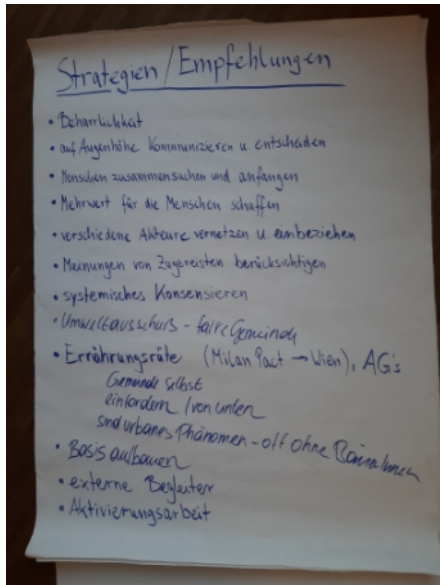 Strategien/Empfehlungen
• Beharrlichkeit
• auf Augenhöhe Kommunizieren u entscheiden
• Menschen zusammensuchen und anfangen
• Mehrwert für die Menschen schaffen
• verschiedene Akteure vernetzen u. einbeziehen
• Meinungen von Zugereisten berücksichtigen
• systemisches Konsensieren
• Umweltausschuß - faire Gemeinde
• Ernährungsräte (Milan Pact → Wien), AG's
Gemeinde selbst
einfordern / von unten
sind urbanes Phänomen - oft ohne
• Basis aufbauen
• externe Begleiter
• Aktivierungsarbeit